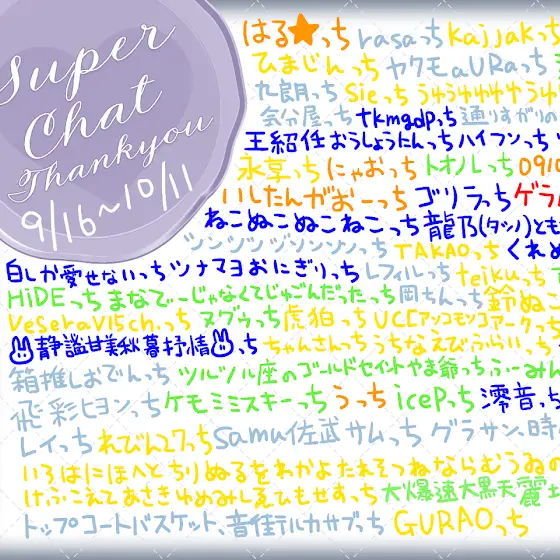 Super
Chat
Thankyou
9/16~10/11
はる★っち rasaっち kajjakっち
ひまじんっち ヤクモaURaっち
九朗っち Sieっち うゅうゅゆゆうゅ
気分屋っち tkmgdpっち 通りすがりの
王紹任おうしょうたんっち ハイフンっち
永享っち にゃおっち トオノレっち 0910
いしたんがおーっち ゴリラっち ゲラ
ねこぬこぬこねこっち 龍乃(タツノ)とも
TAKAOっち くれめ
白しか愛せないっち ツナマヨおにぎりっち レフィルっち teikuっち
HiDEっち まなでーじゃなくてじゅごんだったっち 岡ちんっち 鈴ぬ
VeseraV15ch.っち ヌグゥっち 虎狛っち UCCアッコモンコアークっち
🐰静謐甘美秋暮抒情🐰っち ちゃんさんっち うちなえびふらいっち
箱推しおでんっち ツルツル座のゴールドセイントやま爺っち ふーみん
飛彩ヒヨンっち ケモミミスキーっち うっち icePっち 澪音っち
レイっち れびん27っち Samu佐武サムっち グラサン、時
いろはにほへとちりぬるをわかよたれそつねならむうゐの
けふこえてあさきゆめみしゑひもせすっち 大爆速大黒天麗
トップコートバスケット、音佳テルカサブっち GURAOっち